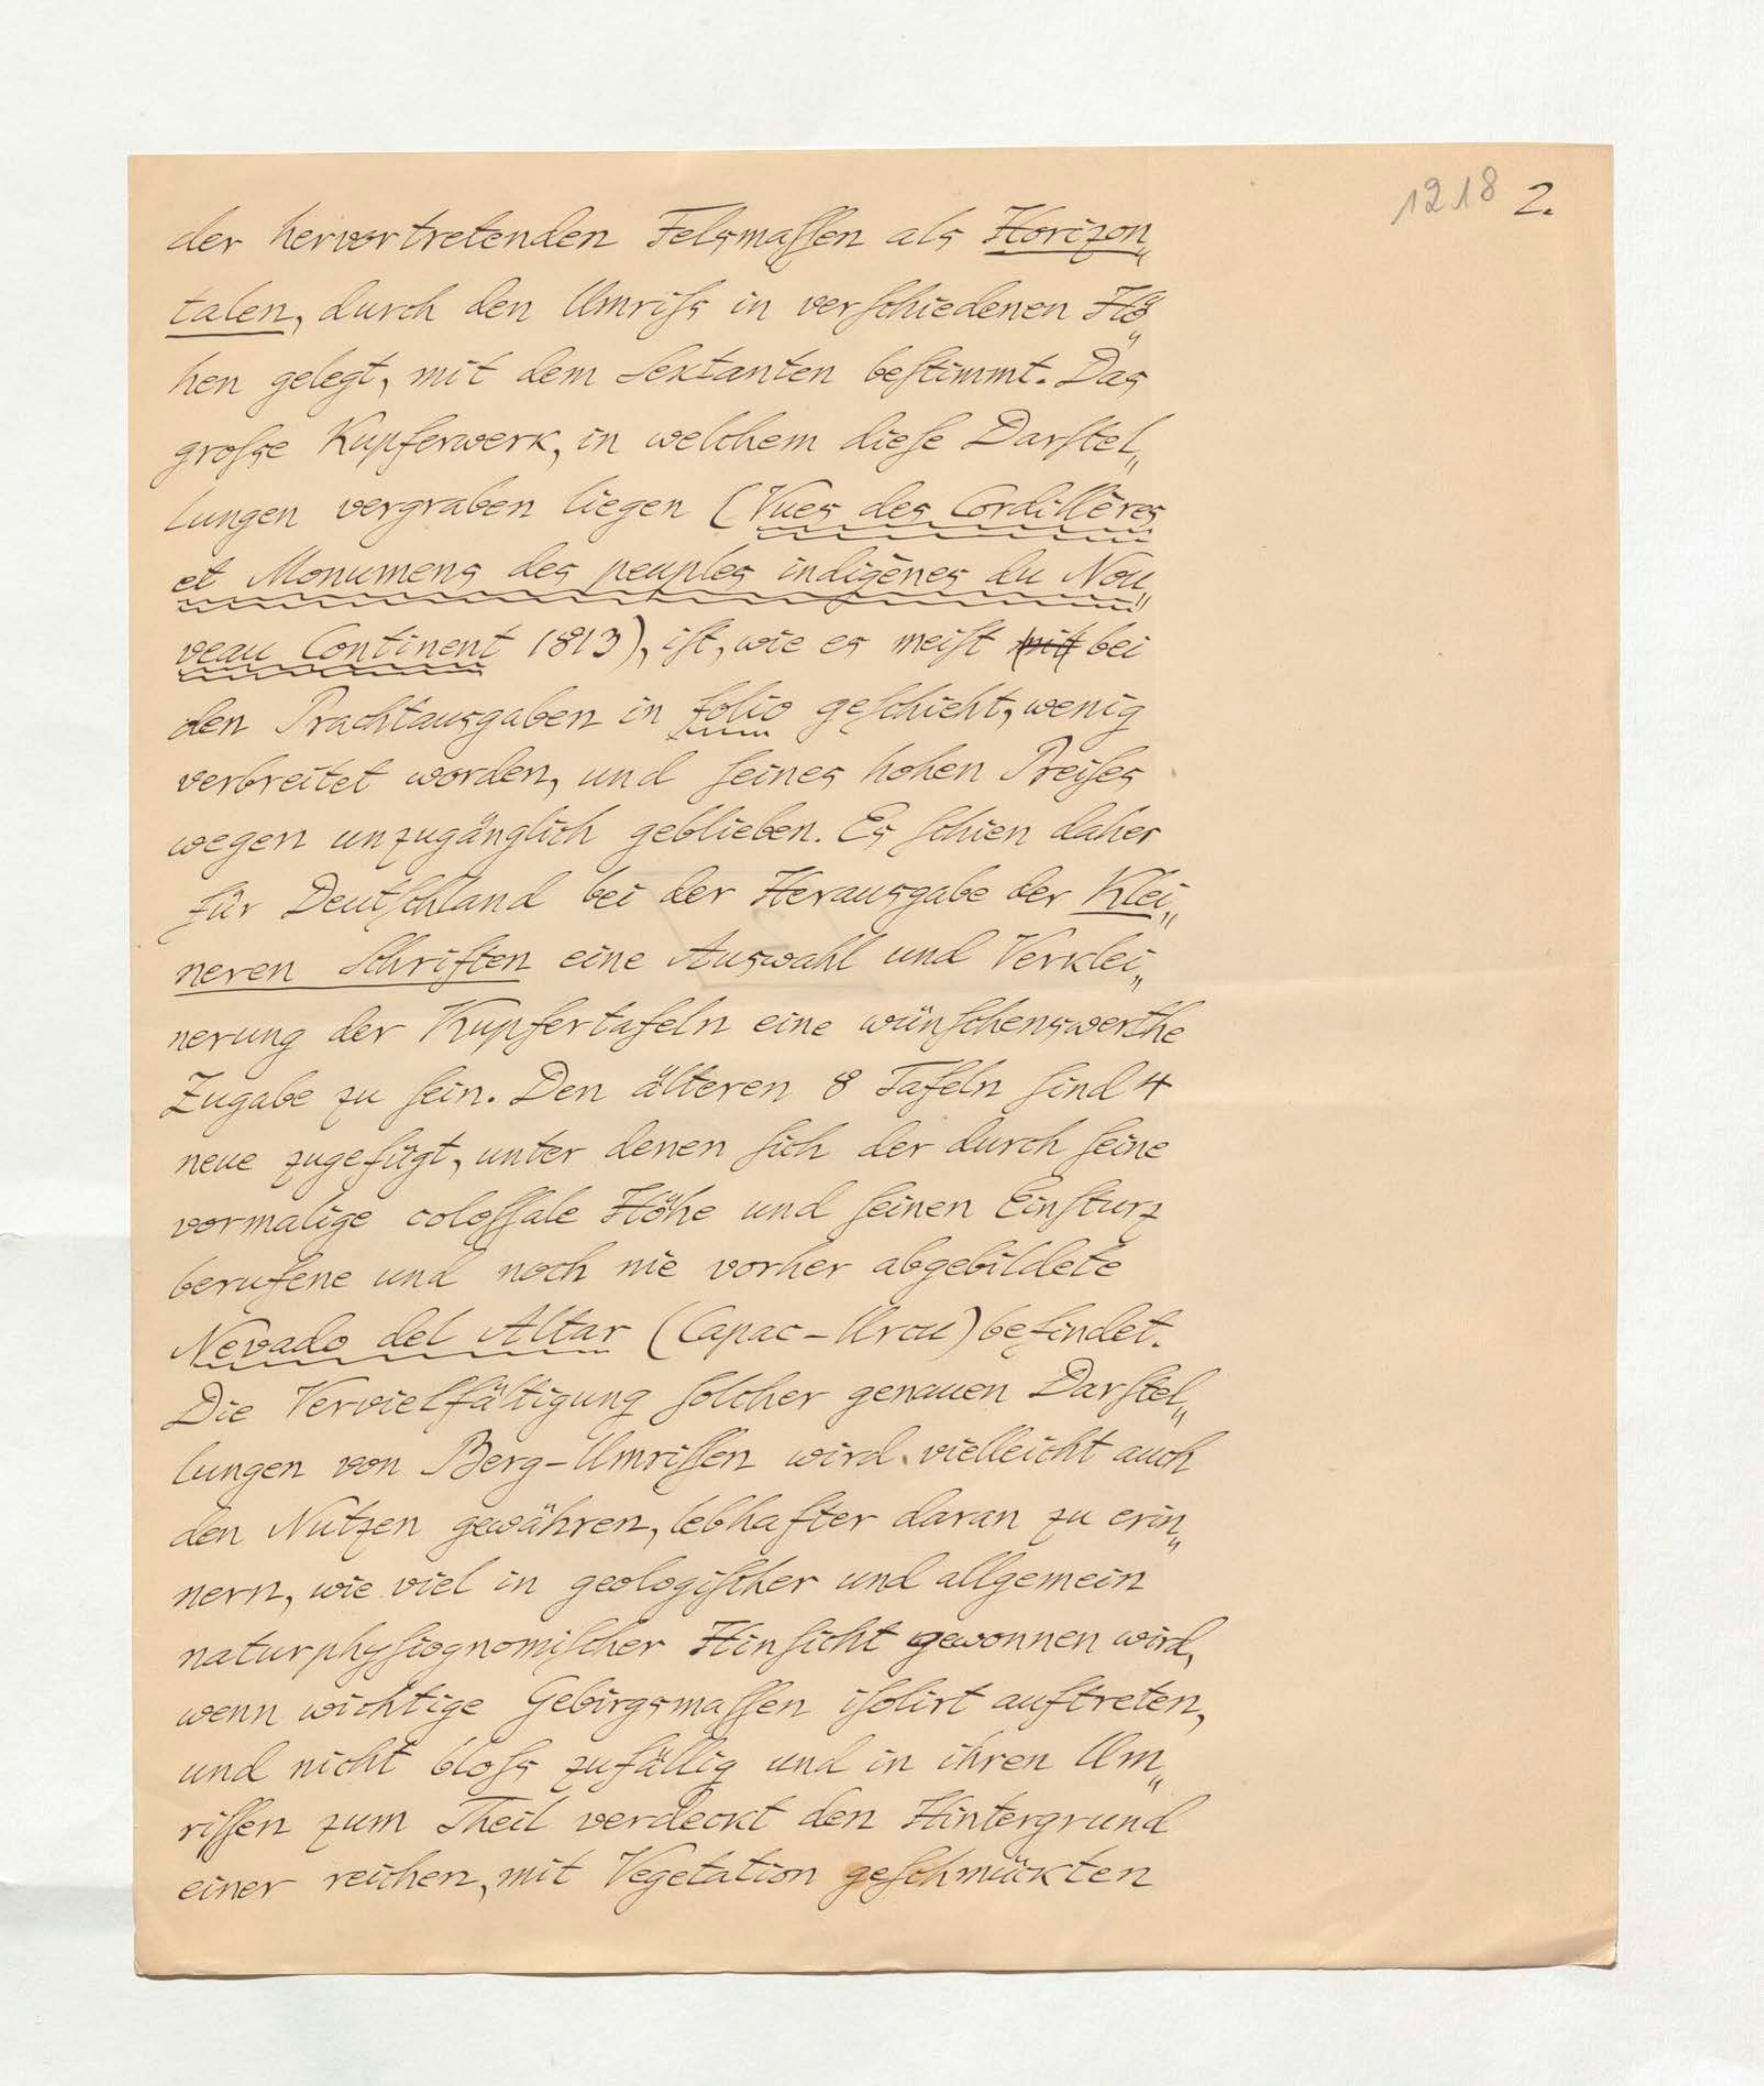 1218 2.
der hervortretenden Felsmassen als Horizon„
talen, durch den Umriss in verschiedenen Hö„
hen gelegt, mit dem Sextanten bestimmt. Das
grosse Kupferwerk, in welchem diese Darstel„
lungen vergraben liegen (Vues des Cordillères
et Monumens des peuples indigènes du Nou„
veau Continent 1813), ist, wie es meist mit bei
den Prachtausgaben in folio geschieht, wenig
verbreitet worden, und seines hohen Preises
wegen unzugänglich geblieben. Es schien daher
für Deutschland bei der Herausgabe der Klei„
neren Schriften eine Auswahl und Verklei„
nerung der Kupfertafeln eine wünschenswerthe
Zugabe zu sein. Den älteren 8 Tafeln sind 4
neue zugefügt, unter denen sich der durch seine
vormalige colossale Höhe und seinen Einsturz
berufene und noch nie vorher abgebildete
Nevado del Altar (Capac-Urcu) befindet.
Die Vervielfältigung solcher genauen Darstel„
lungen von Berg-Umrissen wird vielleicht auch
den Nutzen gewähren, lebhafter daran zu erin„
nern, wie viel in geologischer und allgemein
naturphysiognomischer Hinsicht gewonnen wird,
wenn wichtige Gebirgsmassen isolirt auftreten,
und nicht bloss zufällig und in ihren Um„
rissen zum Theil verdeckt den Hintergrund
einer reichen, mit Vegetation geschmückten